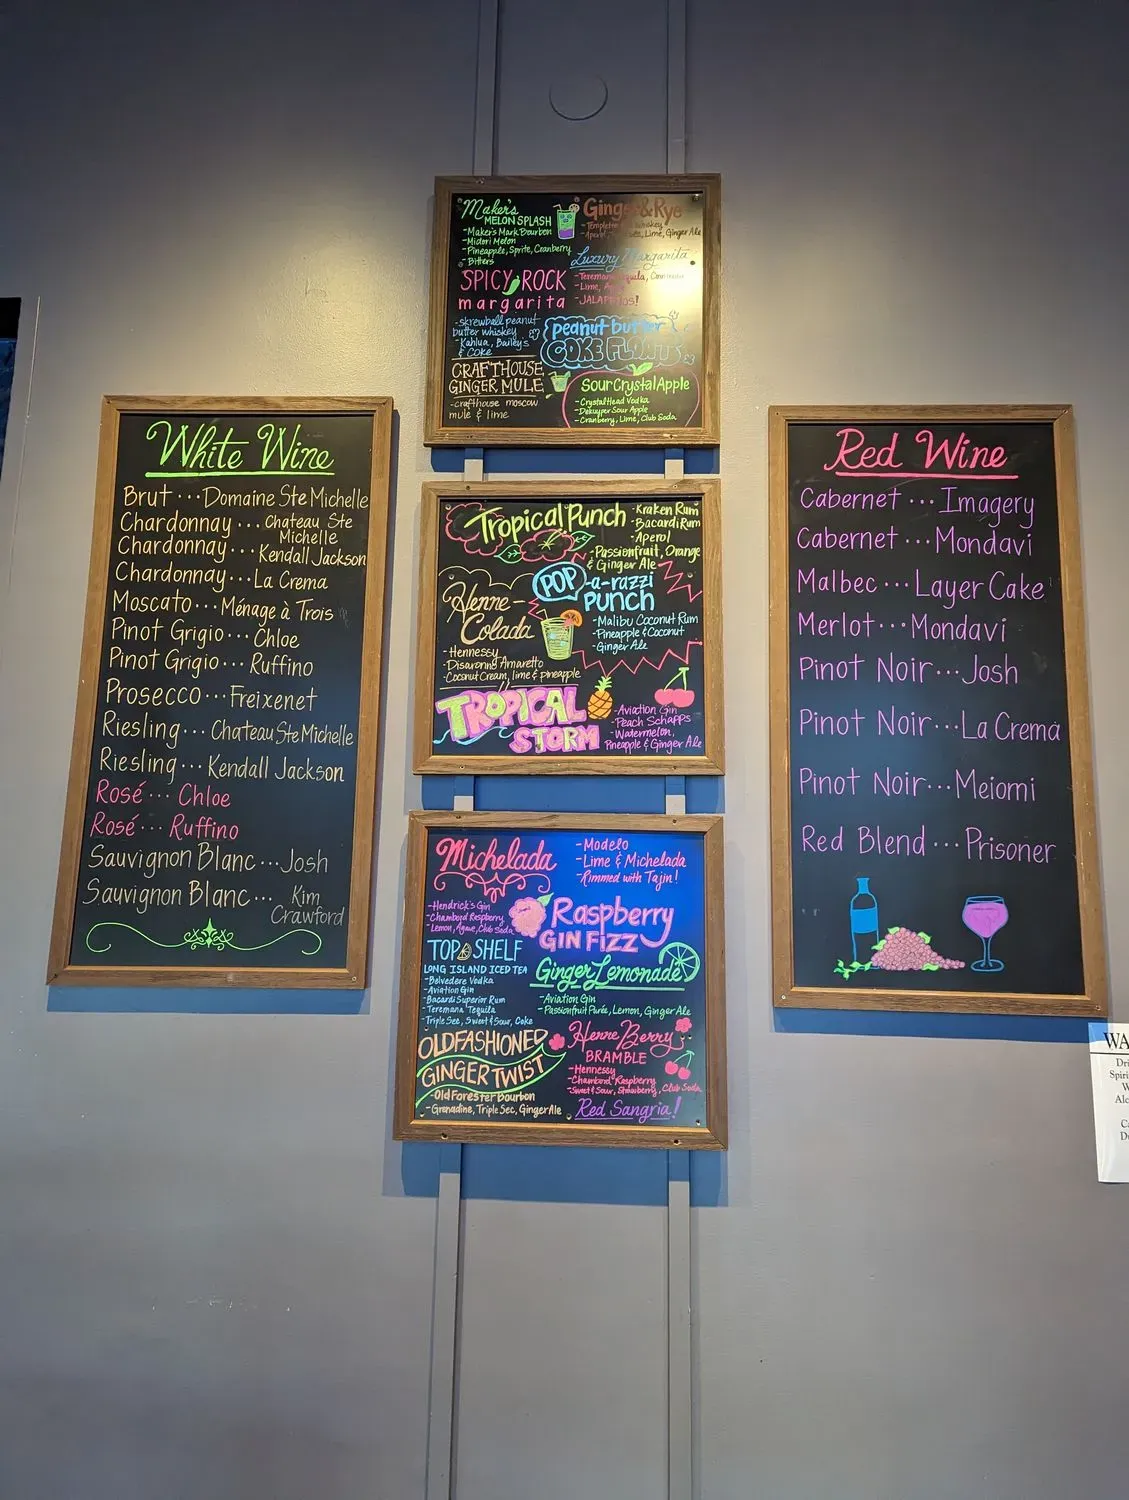 White Wine
Brut ··· Domaine Ste Michelle
Chardonnay ··· Chateau Ste
Michelle
Chardonnay ··· Kendall Jackson
Chardonnay ··· La Crema
Moscato ··· Ménage à Trois
Pinot Grigio ··· Chloe
Pinot Grigio ··· Ruffino
Prosecco ··· Freixenet
Riesling ··· Chateau Ste Michelle
Riesling ··· Kendall Jackson
Rosé ··· Chloe
Rosé ··· Ruffino
Sauvignon Blanc ··· Josh
Sauvignon Blanc ··· Kim
Crawford
Maker's
MELON SPLASH
-Maker's Mark Bourbon
-Midori Melon
-Pineapple, Sprite, Cranberry
-Bitters
Ginger & Rye
Lime, Ginger Ale
SPICY ROCK
margarita
Luxury Margarita
-Teremana Tequila,
-Lime,
-JALAPEÑOS!
-skrewball peanut
butter whiskey
-Kahlua, Bailey's
& COKE
peanut butter
COKE FLOAT
CRAFTHOUSE
GINGER MULE
-crafthouse moscow
mule & lime
Sour Crystal Apple
-Crystal Head Vodka
-Dekuyper Sour Apple
-Cranberry, Lime, Club Soda
Tropical Punch
-Kraken Rum
-Bacardi Rum
-Aperol
-Passionfruit, Orange
& Ginger Ale
Henne-
Colada
-Hennessy
-Disaronno Amaretto
-Coconut Cream, lime & pineapple
POP
-a-razzi
PUNCH
-Malibu Coconut Rum
-Pineapple & Coconut
-Ginger Ale
TROPICAL
STORM
-Aviation Gin
-Peach Schapps
-Watermelon,
Pineapple & Ginger Ale
Michelada
-Modelo
-Lime & Michelada
-Rimmed with Tajin!
-Hendrick's Gin
-Chambord Raspberry
-Lemon, Agave, Club Soda
Raspberry
GIN FIZZ
TOP SHELF
LONG ISLAND ICED TEA
-Belvedere Vodka
-Aviation Gin
-Bacardi Superior Rum
-Teremana Tequila
-Triple Sec, Sweet & Sour, Coke
Ginger Lemonade
-Aviation Gin
-Passionfruit Purée, Lemon, Ginger Ale
OLDFASHIONED
GINGER TWIST
-Old Forester Bourbon
-Grenadine, Triple Sec, Ginger Ale
Henne Berry
BRAMBLE
-Hennessy
-Chambord Raspberry
-Sweet & Sour, Strawberry, Club Soda
Red Sangria!
Red Wine
Cabernet ··· Imagery
Cabernet ··· Mondavi
Malbec ··· Layer Cake
Merlot ··· Mondavi
Pinot Noir ··· Josh
Pinot Noir ··· La Crema
Pinot Noir ··· Meiomi
Red Blend ··· Prisoner